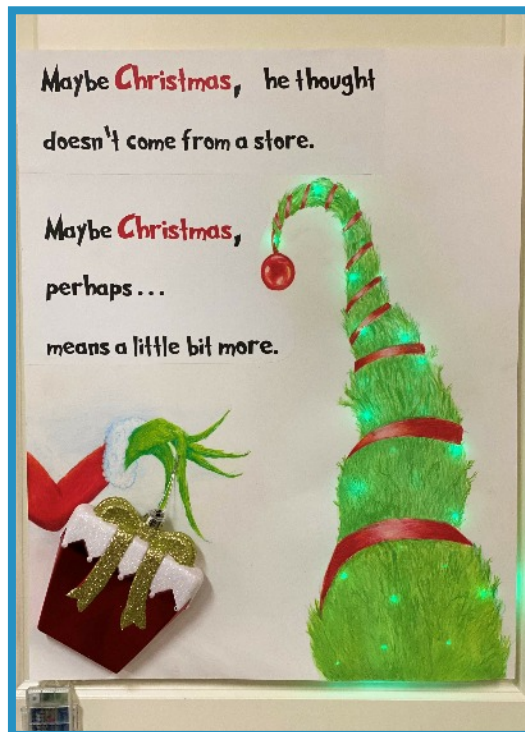 Maybe Christmas, he thought
doesn't come from a store.
Maybe Christmas,
perhaps...
means a little bit more.